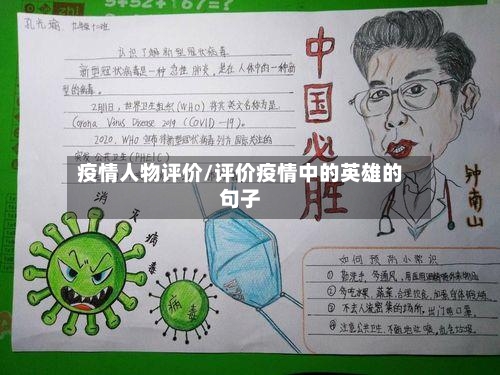 孔光瑜, 九年级十二班
认识了解新型冠状病毒
新型冠状病毒是一种急性肺炎,是在人体中的一种新
型的病毒。
2月11日,世界卫生组织(WHO)将其英文名称为是
Corona Virus Disease 2019 (COVID-19)。
2020, WHO 宣布将新型冠状病毒列为国际关注的
突发公共卫生(PHEIC)
中国必胜
疫情人物评价/评价疫情中的英雄的
句子
钟南山
消灭病毒
病毒
如何预防小常识
① 勤洗手,多通风,
② 多吃水果、蔬菜,合理饮食,加强身体锻炼
③ 不去人流密集的场所,出门戴口罩。
④ 注意公共卫生,不随地吐痰,